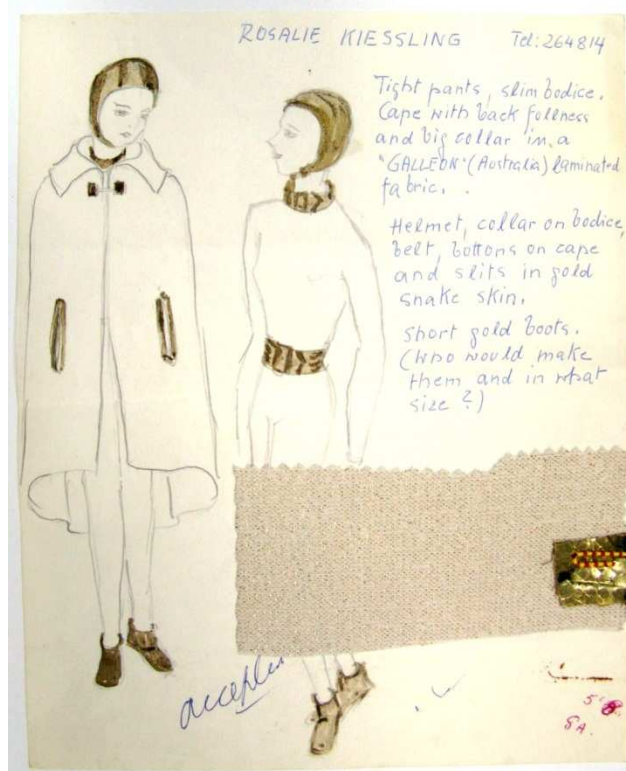 ROSALIE KIESSLING Tel: 264814
Tight pants, slim bodice.
Cape with back fullness
and big collar in a
"GALLEON" (Australia) laminated
fabric.
Helmet, collar on bodice,
belt, bottons on cape
and slits in gold
snake skin.
Short gold boots.
(Who would make
them and in what
size?)